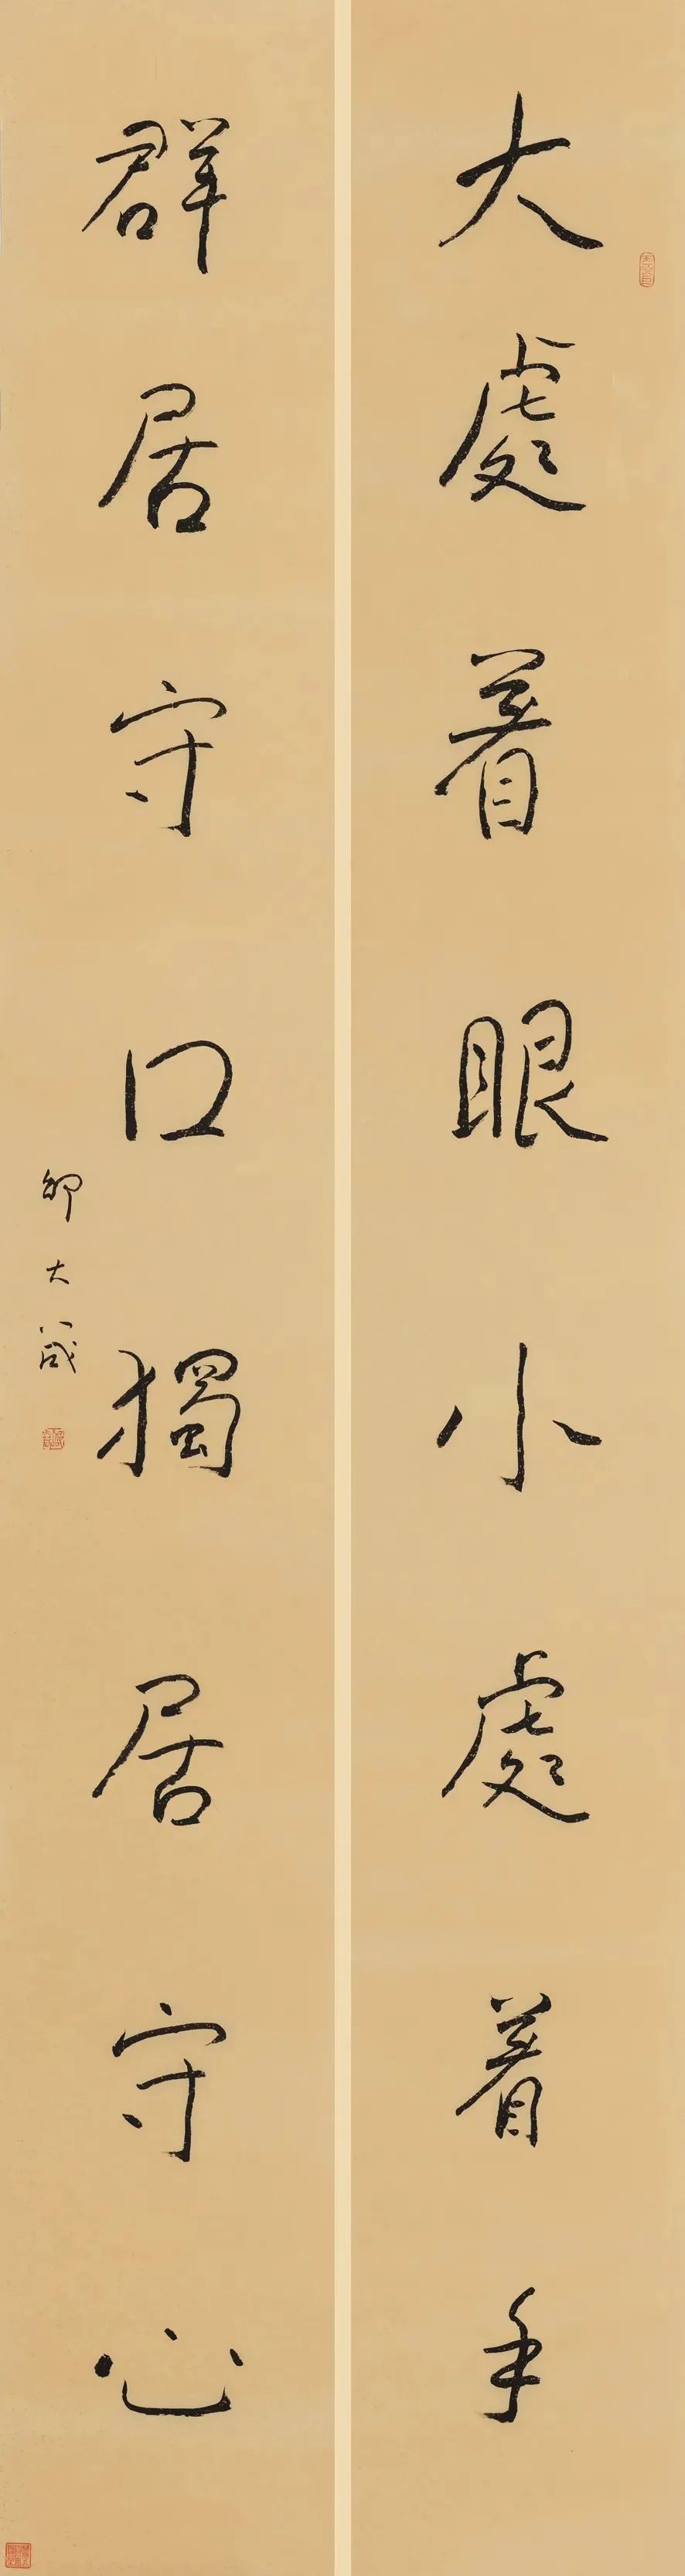 大處着眼小處着手
群居守口獨居守心
邹大箴